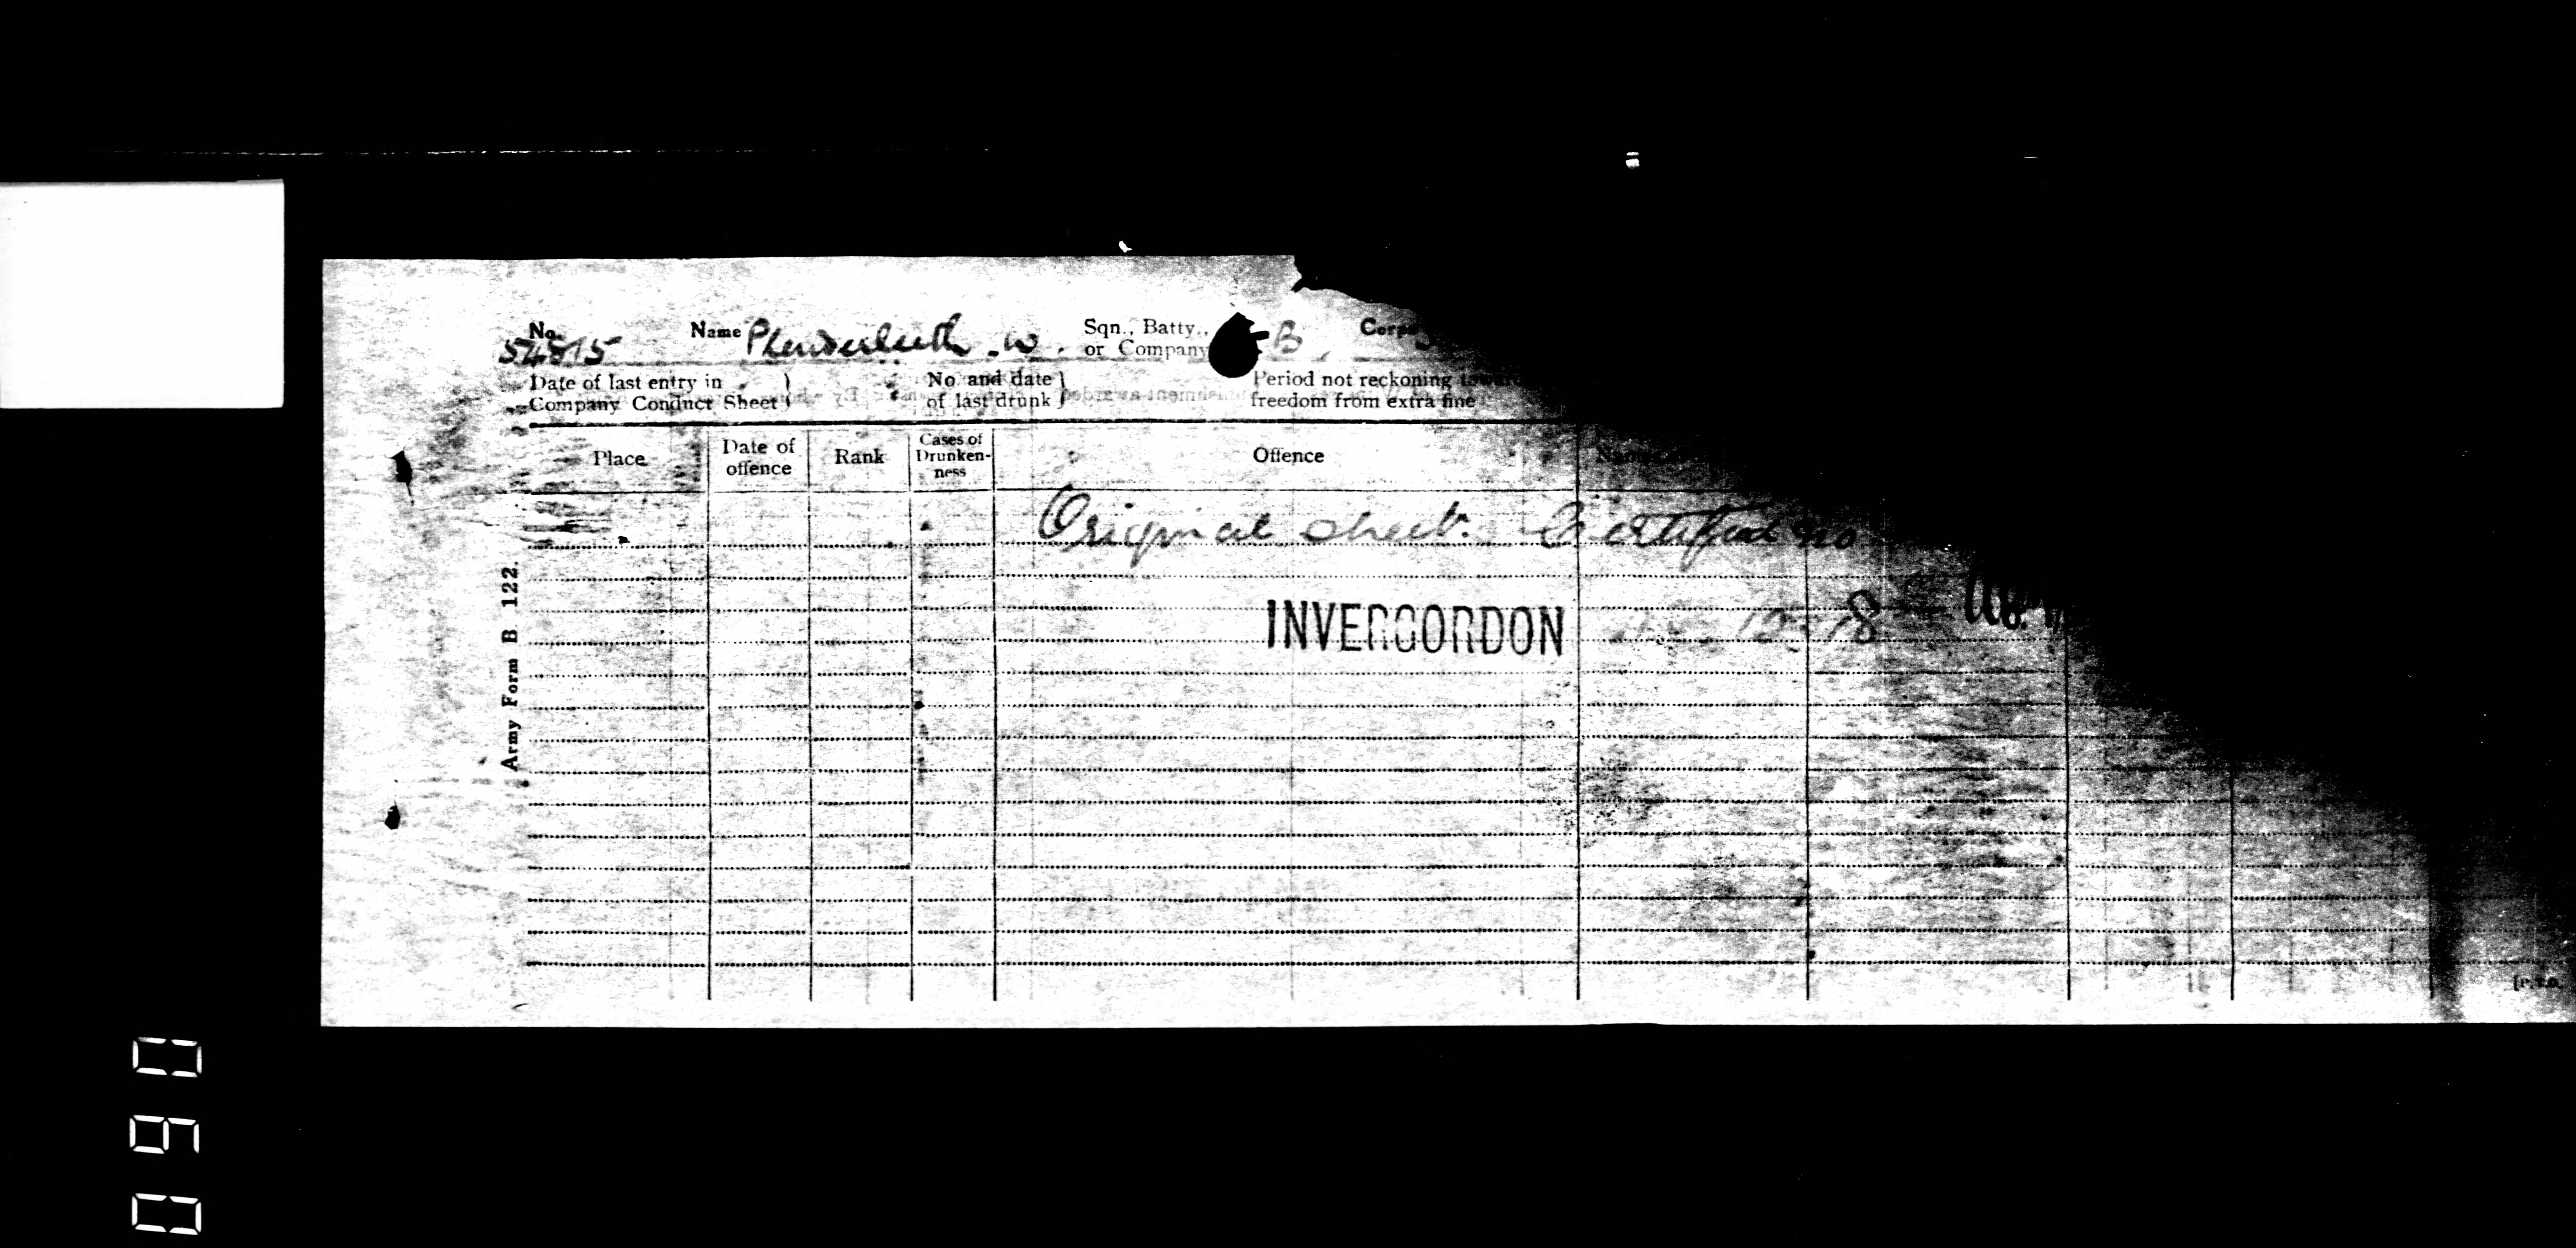 No. 54815 Name Plenderleith . W . Sqn., Batty., or Company B , Corps
Date of last entry in Company Conduct Sheet No. and date of last drunk Period not reckoning towards freedom from extra fine
Place Date of offence Rank Cases of Drunken-ness Offence
Original sheet. Certified no
INVERGORDON 10 18
Army Form B 122.
[P.T.O.
060